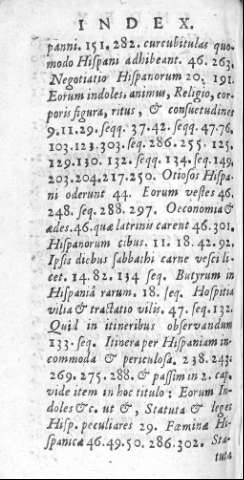 INDEX.
panni. 151. 282. curcubitulas quo-
modo Hispani adhibeant. 46. 263.
Negotiatio Hispanorum 20. 191.
Eorum indoles, animus, Religio, cor-
poris figura, ritus, & consuetudines
9.11.29. seqq. 37.42. seqq. 47.76.
103.123.303. seq. 286.255. 125.
129.130. 132. seqq. 134. seq. 149.
203.204.217.250. Otiosos Hispa-
ni oderunt 44. Eorum vestes 46.
248. seq. 288. 297. Occonomia &
ædes. 46. quæ latrinis carent 46.301.
Hispanorum cibus. 11. 18. 42. 92.
Ipsis diebus sabbathi carne vesci li-
cet. 14. 82. 134 seq. Butyrum in
Hispaniâ rarum. 18. seq. Hospitia
vilia & tractatio vilis. 47. seq. 132.
Quid in itineribus observandum
133. seq. Itinera per Hispaniam in-
commoda & periculosa. 238. 243.
269. 275. 288. & passim in 2. cap.
vide item in hoc titulo: Eorum In-
doles &c. ut &, Statuta & leges
Hisp. peculiares 29. Fœminæ Hi-
spanicæ 46.49.50. 286.302. Sta-
tuta